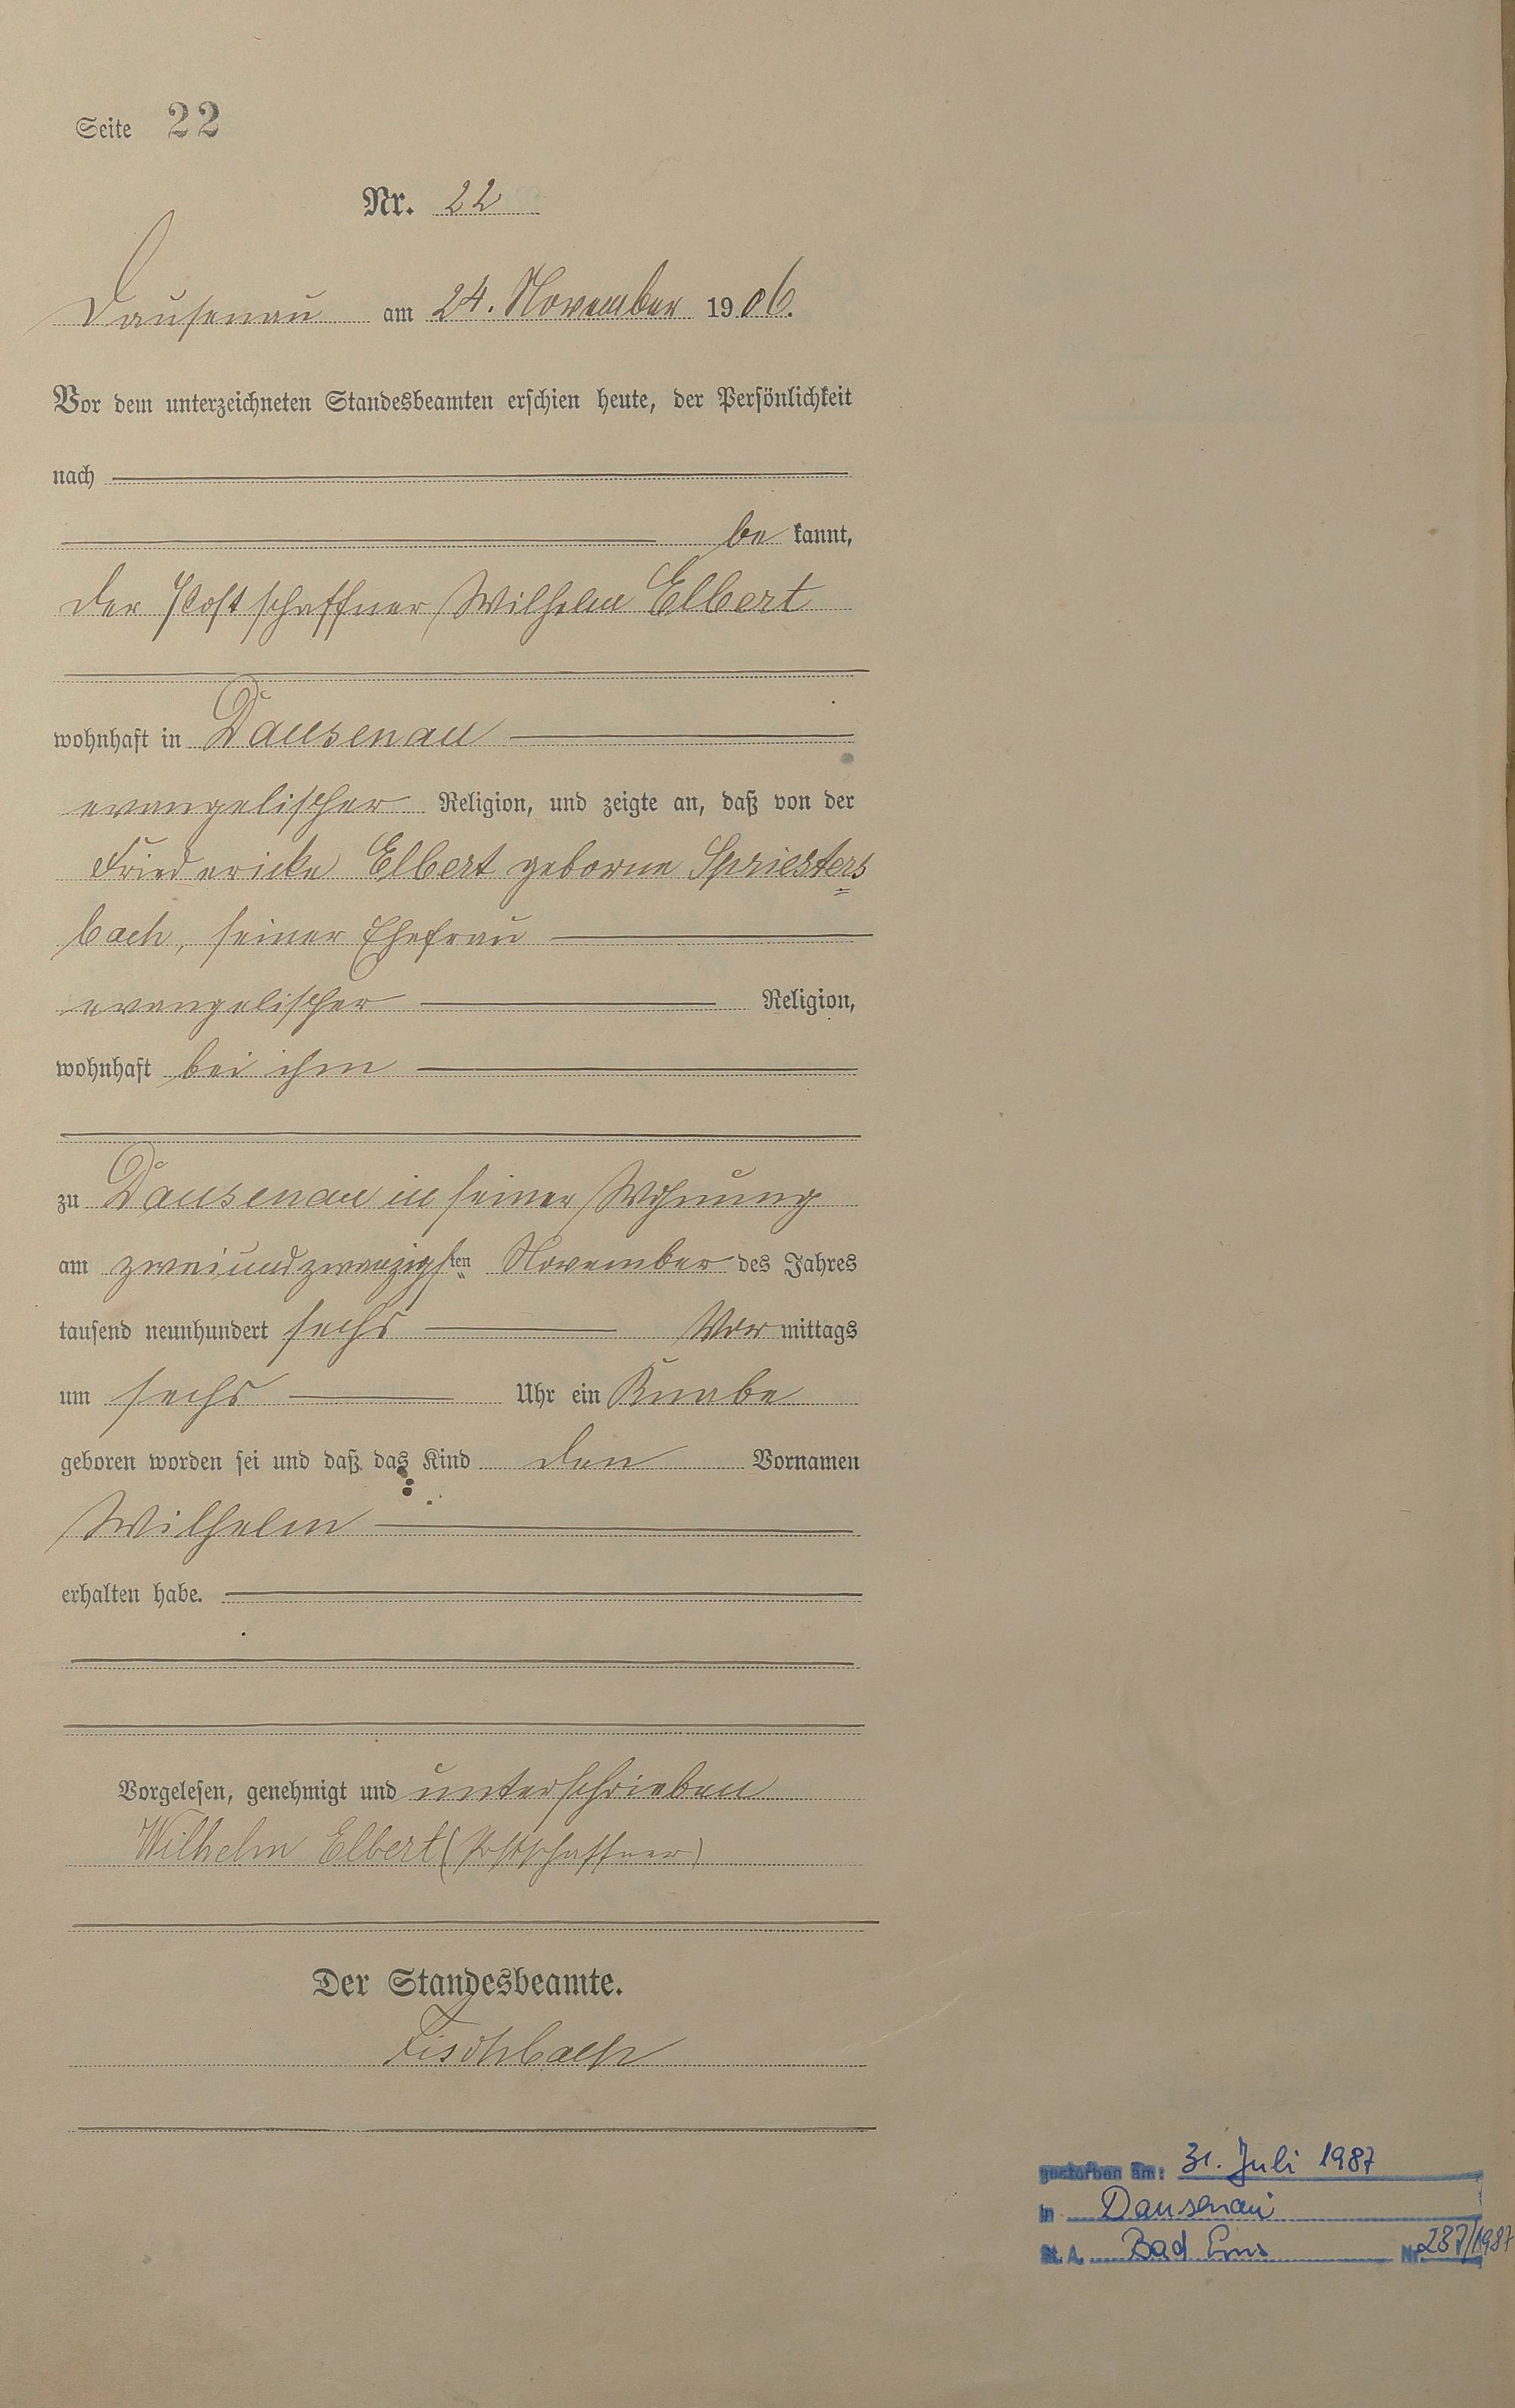 Seite 22
Nr. 22
Dausenau am 24. November 1906.
Vor dem unterzeichneten Standesbeamten erschien heute, der Persönlichkeit
nach
be kannt,
der Postschaffner Wilhelm Elbert
wohnhaft in Dausenau
evangelischer Religion, und zeigte an, daß von der
Friedericke Elbert geborne Spriesters
bach, seiner Ehefrau
evangelischer Religion,
wohnhaft bei ihm
zu Dausenau in seiner Wohnung
am zweiundzwanzigsten November des Jahres
tausend neunhundert sechs Vor mittags
um sechs Uhr ein Knabe
geboren worden sei und daß das Kind den Vornamen
Wilhelm
erhalten habe.
Vorgelesen, genehmigt und unterschrieben
Wilhelm Elbert (Postschaffner)
Der Standesbeamte.
Fischbach
gestorben am: 31. Juli 1987
in Dausenau
St. A. Bad Ems Nr. 287/1987